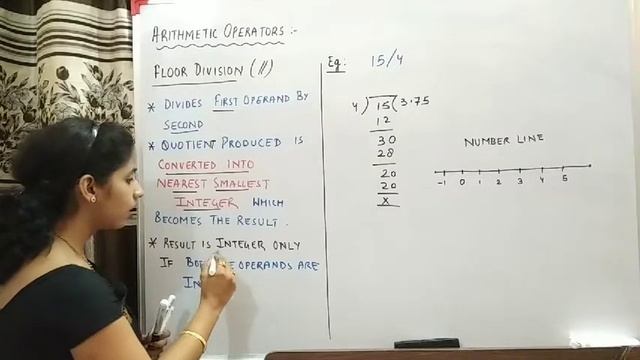 ARITHMETIC OPERATORS :-
FLOOR DIVISION (//)
* DIVIDES FIRST OPERAND BY
SECOND
* QUOTIENT PRODUCED IS
CONVERTED INTO
NEAREST SMALLEST
INTEGER WHICH
BECOMES THE RESULT.
* RESULT IS INTEGER ONLY
IF OPERANDS ARE
Eg: 15/4
4) 15 (3.75
12
30
28
20
20
x
NUMBER LINE
-1 0 1 2 3 4 5